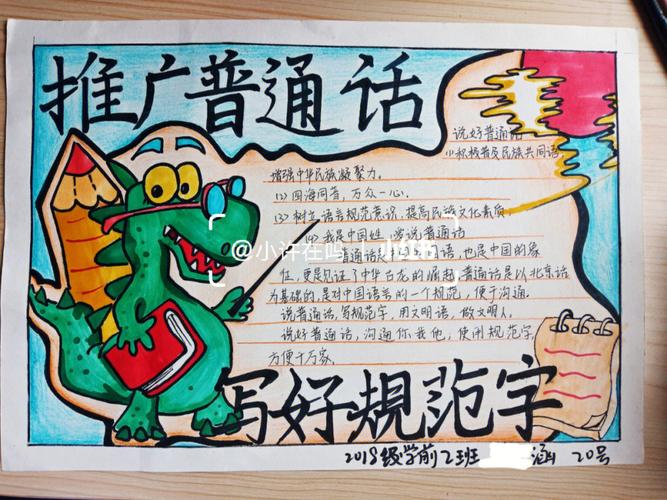 推广普通话
说好普通话
(1)积极普及民族共同语
增强中华民族凝聚力。
(2)四海同音,万众一心。
(3)树立语言规范意识,提高民族文化素质。
(4)我是中国娃,爱说普通话
普通话
语,也是中国的象
征,更是见证了中华古龙的涌起,普通话是以北京话
为基础的,是对中国语言的一个规范,便于沟通。
说普通话,写规范字,用文明语,做文明人。
说好普通话,沟通你我他,使用规范字
方便千万家、
写好规范字
2018级学前2班 涵 20号
@小许在吗
小红书